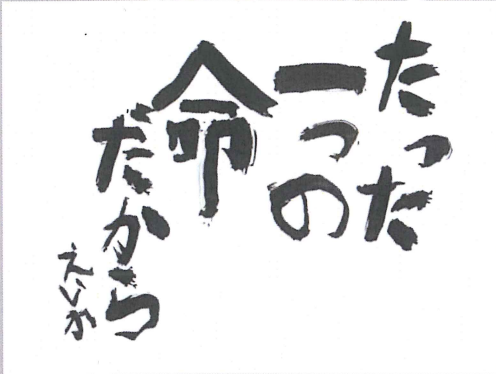 たった
一つの
命
だから
えいか